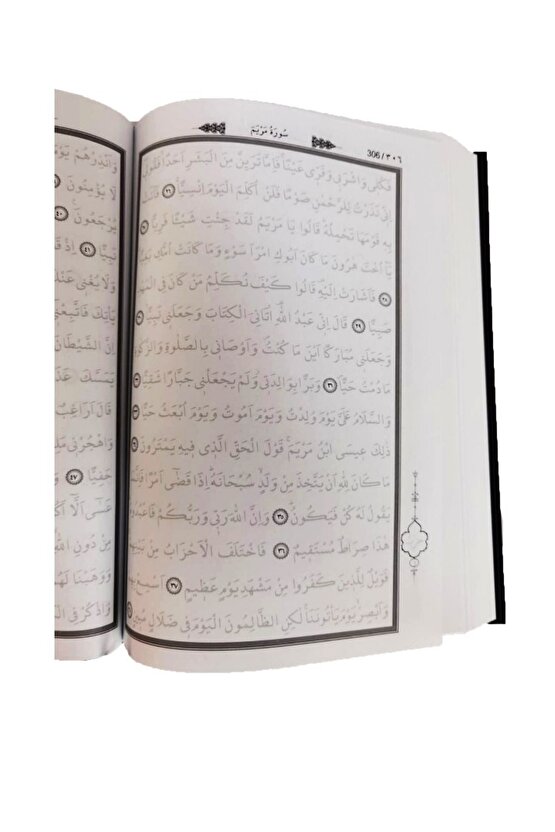 سُورَةُ مَرْيَمَ
306/٣٠٦
فَكُلٖى وَاشْرَبٖى وَقَرّٖى عَيْنًا فَاِمَّا تَرَيِنَّ مِنَ الْبَشَرِ اَحَدًا فَقُولٖى
اِنّٖى نَذَرْتُ لِلرَّحْمٰنِ صَوْمًا فَلَنْ اُكَلِّمَ الْيَوْمَ اِنْسِيًّا ٢٦ فَاَتَتْ
بِهٖ قَوْمَهَا تَحْمِلُهُ قَالُوا يَا مَرْيَمُ لَقَدْ جِئْتِ شَيْئًا فَرِيًّا
يَٓا اُخْتَ هٰرُونَ مَا كَانَ اَبُوكِ امْرَاَ سَوْءٍ وَمَا كَانَتْ اُمُّكِ بَغِيًّا
٢٨ فَاَشَارَتْ اِلَيْهِ قَالُوا كَيْفَ نُكَلِّمُ مَنْ كَانَ فِى الْمَهْدِ
صَبِيًّا ٢٩ قَالَ اِنّٖى عَبْدُ اللّٰهِ اٰتَانِىَ الْكِتَابَ وَجَعَلَنٖى نَبِيًّا
وَجَعَلَنٖى مُبَارَكًا اَيْنَ مَا كُنْتُ وَاَوْصَانٖى بِالصَّلٰوةِ وَالزَّكٰوةِ
مَا دُمْتُ حَيًّا ٣١ وَبَرًّا بِوَالِدَتٖى وَلَمْ يَجْعَلْنٖى جَبَّارًا شَقِيًّا
وَالسَّلَامُ عَلَىَّ يَوْمَ وُلِدْتُ وَيَوْمَ اَمُوتُ وَيَوْمَ اُبْعَثُ حَيًّا
ذٰلِكَ عٖيسَى ابْنُ مَرْيَمَ قَوْلَ الْحَقِّ الَّذٖى فٖيهِ يَمْتَرُونَ
مَا كَانَ لِلّٰهِ اَنْ يَتَّخِذَ مِنْ وَلَدٍ سُبْحَانَهُ اِذَا قَضٰٓى اَمْرًا فَاِنَّمَا
يَقُولُ لَهُ كُنْ فَيَكُونُ ٣٥ وَاِنَّ اللّٰهَ رَبّٖى وَرَبُّكُمْ فَاعْبُدُوهُ
هٰذَا صِرَاطٌ مُسْتَقٖيمٌ ٣٦ فَاخْتَلَفَ الْاَحْزَابُ مِنْ بَيْنِهِمْ
فَوَيْلٌ لِلَّذٖينَ كَفَرُوا مِنْ مَشْهَدِ يَوْمٍ عَظٖيمٍ ٣٧ اَسْمِعْ بِهِمْ
وَاَبْصِرْ يَوْمَ يَاْتُونَنَا لٰكِنِ الظَّالِمُونَ الْيَوْمَ فٖى ضَلَالٍ مُبٖينٍ
وَاَنْذِرْهُمْ يَوْمَ
لَا يُؤْمِنُونَ
يُرْجَعُونَ ٤٠
نَبِيًّا ٤١ اِذْ قَا
وَلَا يُغْنٖى عَنْكَ
يَاْتِكَ فَاتَّبِعْنٖى
اِنَّ الشَّيْطَانَ
يَمَسَّكَ عَذَ
قَالَ اَرَاغِبٌ
وَاهْجُرْنٖى مَلِ
حَفِيًّا ٤٧ وَ
عَسٰٓى اَلَّٓا اَكُ
مِنْ دُونِ اللّٰهِ
وَوَهَبْنَا لَهُمْ
وَاذْكُرْ فِى الْ